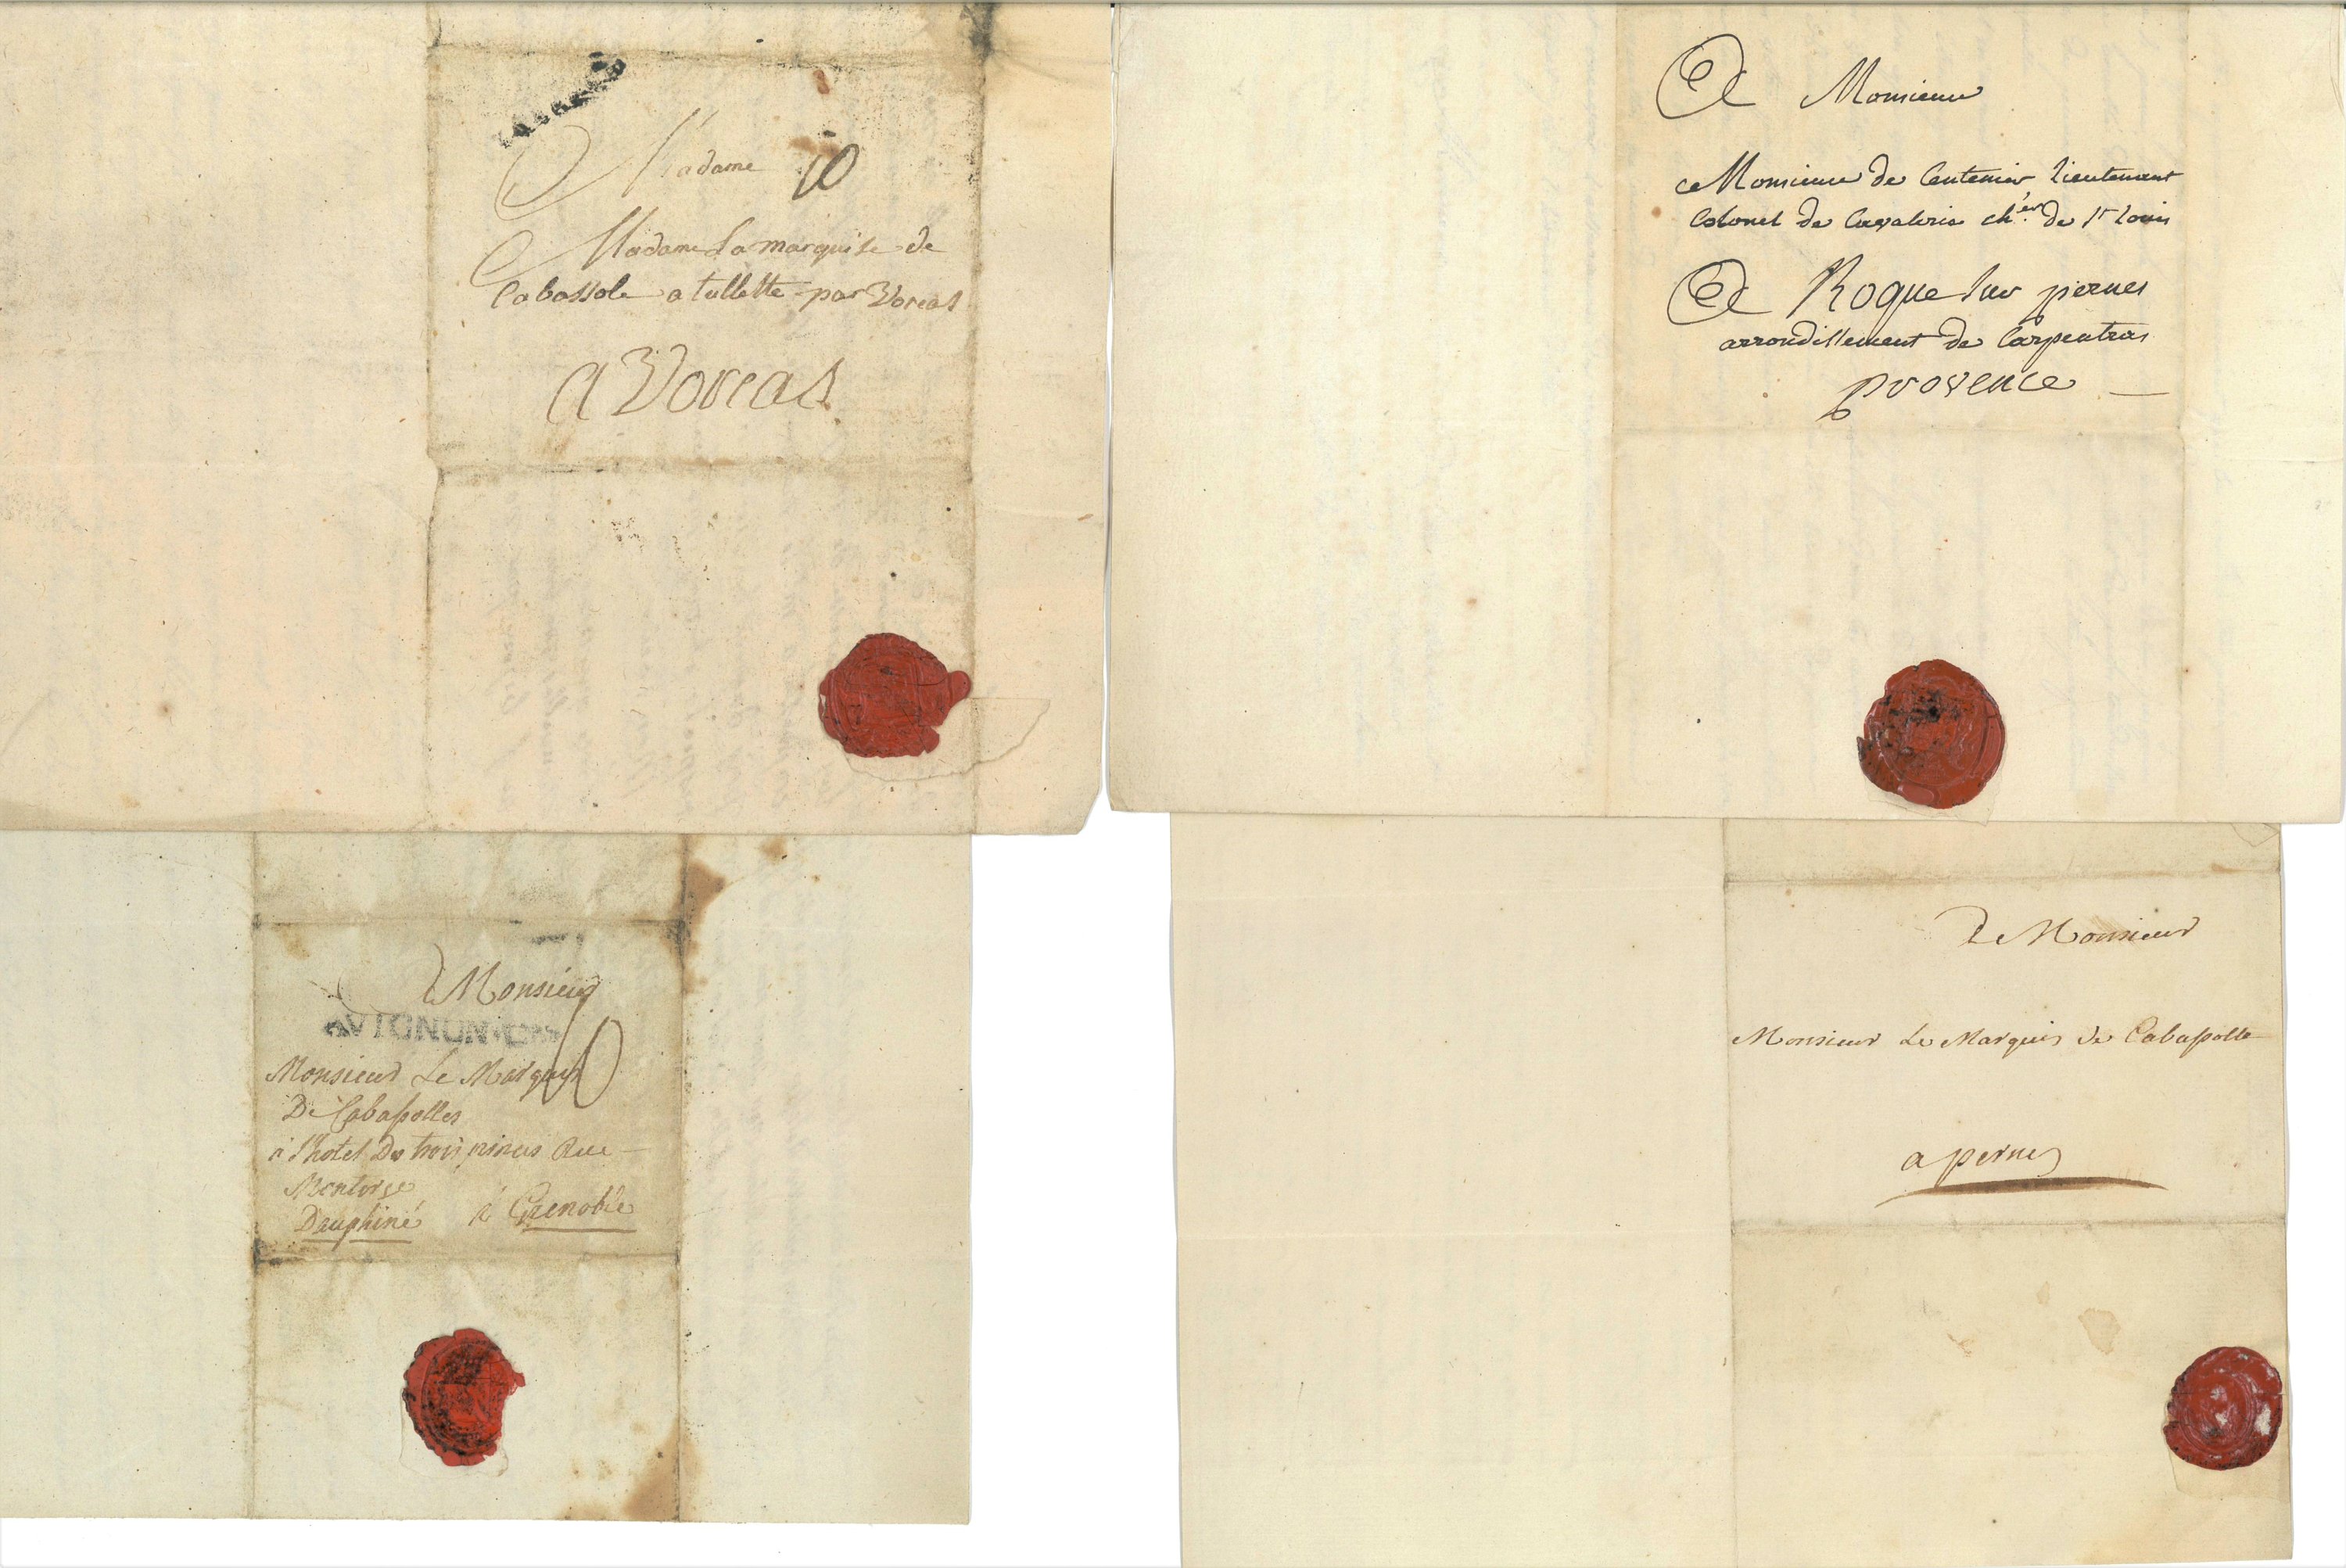 Madame
10
Madame La marquise de
Cabassole a tullette par Voreas
A Voreas
A Monsieur
Monsieur de Centenier, lieutenant
Colonel de Cavalerie ch.er de St Louis
A Roque sur pernes
arrondissement de Carpentras
provence
A Monsieur
AVIGNON
Monsieur Le Marquis
De Cabassolles
à l'hotel Des trois
Rue
Montorge
Dauphiné à Grenoble
A Monsieur
Monsieur Le Marquis de Cabassolle
a pernes